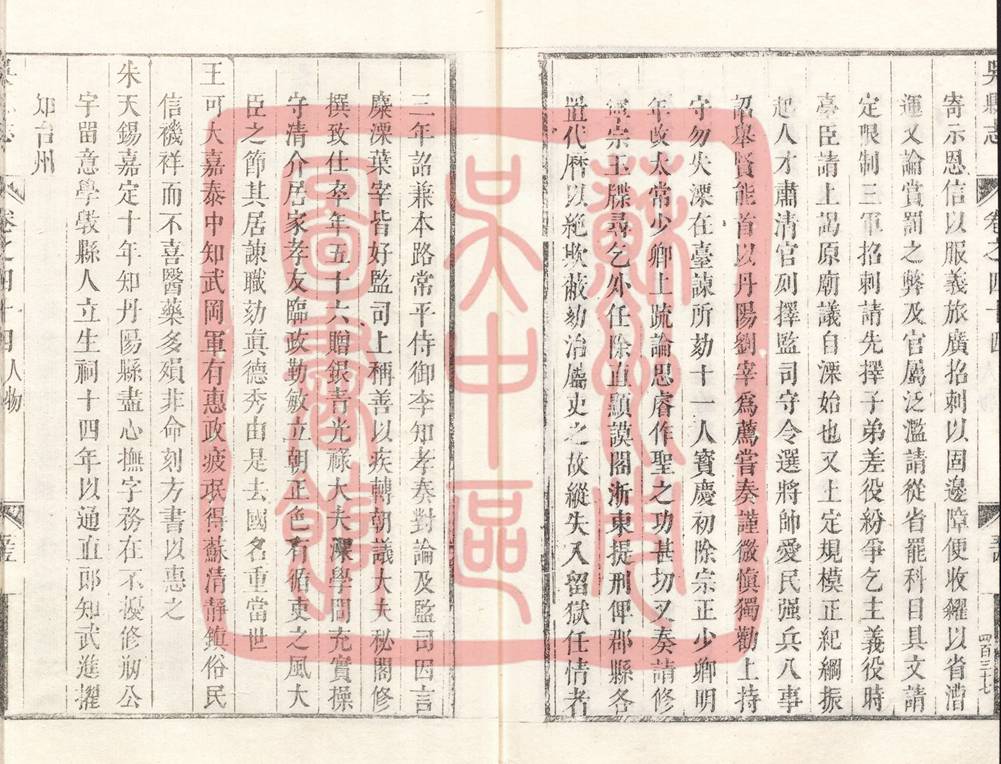 吳縣志
卷之四十四
四百三十七
寄示恩信以服義旅廣招刺以固邊障便收糴以省漕
運又論賞罰之弊及官屬泛濫請從省罷科目具文請
定限制三軍招刺請先擇子弟差役紛爭乞主義役時
臺臣請上謁原廟議自溧始也又上定規模正紀綱振
起人才肅清官列擇監司守令選將帥愛民强兵八事
詔舉賢能首以丹陽劉宰爲薦嘗奏謹微愼獨勸上持
守勿失溧在臺諫所劾十一人寶慶初除宗正少卿明
年改太常少卿上疏論思睿作聖之功甚切又奏請修
寧宗玉牒尋乞外任除直顯謨閣浙東提刑俾郡縣各
置代曆以絶欺蔽劾治屬吏之故縱失入留獄任情者
三年詔兼本路常平侍御李知孝奏對論及監司因言
麋溧葉宰皆好監司上稱善以疾轉朝議大夫秘閣修
撰致仕卒年五十六贈銀靑光祿大夫溧學問充實操
守淸介居家孝友臨政勤敏立朝正色有循吏之風大
臣之節其居諫職劾眞德秀由是去國名重當世
王可大嘉泰中知武岡軍有惠政疲珉得蘇清靜鎮俗民
信禨祥而不喜醫藥多殞非命刻方書以惠之
朱天錫嘉定十年知丹陽縣盡心撫字務在不擾修刱公
宇留意學敎縣人立生祠十四年以通直郎知武進擢
知台州
卷之四十四人物
蘇州市
吳中區
圖書館